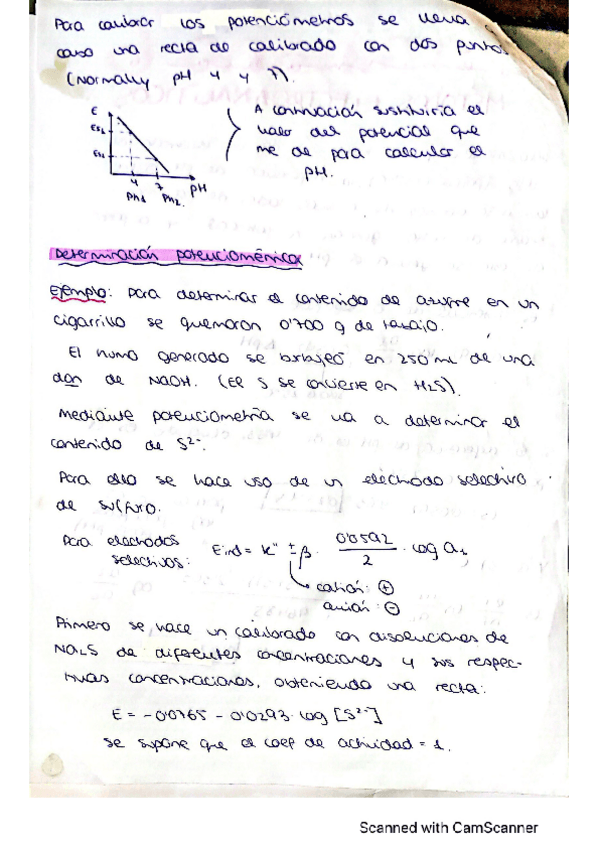 Para calibrar los potenciómetros se lleva a
cabo una recta de calibrado con dos puntos
(Normally pH 4 y 7).
E
Es2
Es1
4
7
pH
Ph1
Ph2
A continuación sustituiría el
valor del potencial que
me de para calcular el
pH.
Determinación potenciométrica
Ejemplo: Para determinar el contenido de azufre en un
cigarrillo se quemaron 0'700 g de tabajo.
El humo generado se burbujeó en 250 mL de una
dón de NaOH. (El S se convierte en H2S).
Mediante potenciometría se va a determinar el
contenido de S2-.
Para ello se hace uso de un electrodo selectivo
de sulfuro.
Para electrodos
selectivos:
Eind = K'' ± β · 0'0592/2 · log a1
catión: ⊕
anión: ⊖
Primero se hace un calibrado con disoluciones de
Na2S de diferentes concentraciones y sus respec-
tivas concentraciones, obteniendo una recta:
E = -0'0765 - 0'0293 · log [S2-]
se supone que el coef de actividad = 1.
Scanned with CamScanner